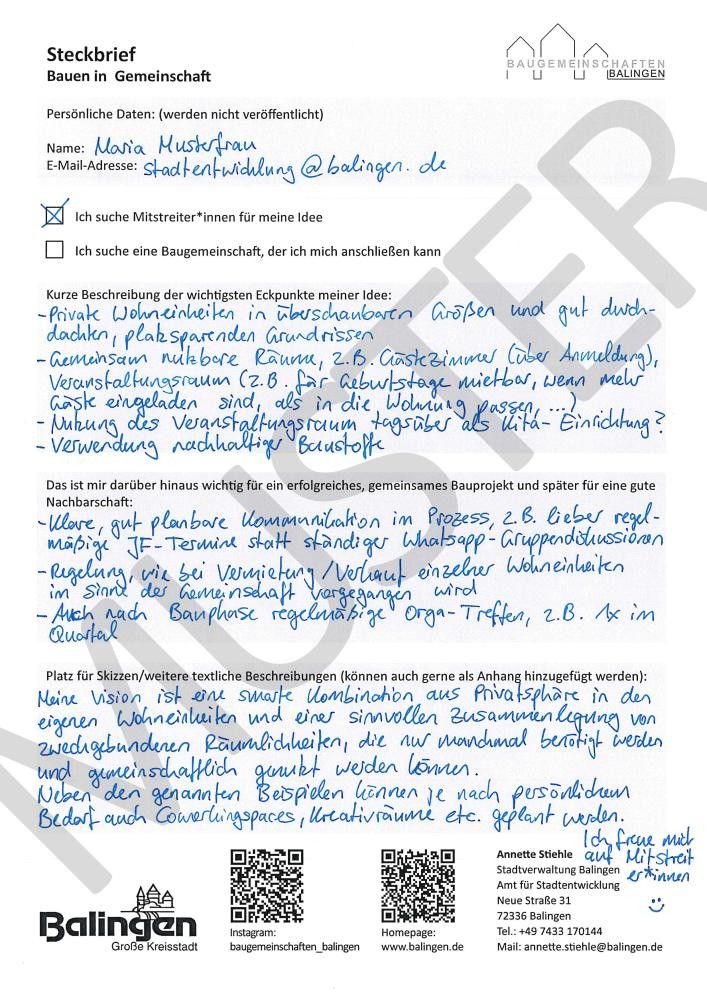 Steckbrief
Bauen in Gemeinschaft
BAUGEMEINSCHAFTEN
BALINGEN
Persönliche Daten: (werden nicht veröffentlicht)
Name: Maria Musterfrau
E-Mail-Adresse: stadtentwicklung@balingen.de
Ich suche Mitstreiter*innen für meine Idee
Ich suche eine Baugemeinschaft, der ich mich anschließen kann
Kurze Beschreibung der wichtigsten Eckpunkte meiner Idee:
- Private Wohneinheiten in überschaubaren Größen und gut durch-
dachten, platzsparenden Grundrissen
- Gemeinsam nutzbare Räume, z.B. Gästezimmer (über Anmeldung),
Veranstaltungsraum (z.B. für Geburtstage mietbar, wenn mehr
Gäste eingeladen sind, als in die Wohnung passen, ...)
- Nutzung des Veranstaltungsraum tagsüber als Kita-Einrichtung?
- Verwendung nachhaltiger Baustoffe
Das ist mir darüber hinaus wichtig für ein erfolgreiches, gemeinsames Bauprojekt und später für eine gute
Nachbarschaft:
- Klare, gut planbare Kommunikation im Prozess, z.B. lieber regel-
mäßige JF-Termine statt ständiger Whatsapp-Gruppendiskussionen
- Regelung, wie bei Vermietung/Verkauf einzelner Wohneinheiten
im Sinne der Gemeinschaft vorgegangen wird
- Auch nach Bauphase regelmäßige Orga-Treffen, z.B. 1x im
Quartal
Platz für Skizzen/weitere textliche Beschreibungen (können auch gerne als Anhang hinzugefügt werden):
Meine Vision ist eine smarte Kombination aus Privatsphäre in den
eigenen Wohneinheiten und einer sinnvollen Zusammenlegung von
zweckgebundenen Räumlichkeiten, die nur manchmal benötigt werden
und gemeinschaftlich genutzt werden können.
Neben den genannten Beispielen können je nach persönlichem
Bedarf auch Coworkingspaces, Kreativräume etc. geplant werden.
Ich freue mich
auf Mitstreit
er*innen
Balingen
Große Kreisstadt
Instagram:
baugemeinschaften_balingen
Homepage:
www.balingen.de
Annette Stiehle
Stadtverwaltung Balingen
Amt für Stadtentwicklung
Neue Straße 31
72336 Balingen
Tel.: +49 7433 170144
Mail: annette.stiehle@balingen.de
MUSTER